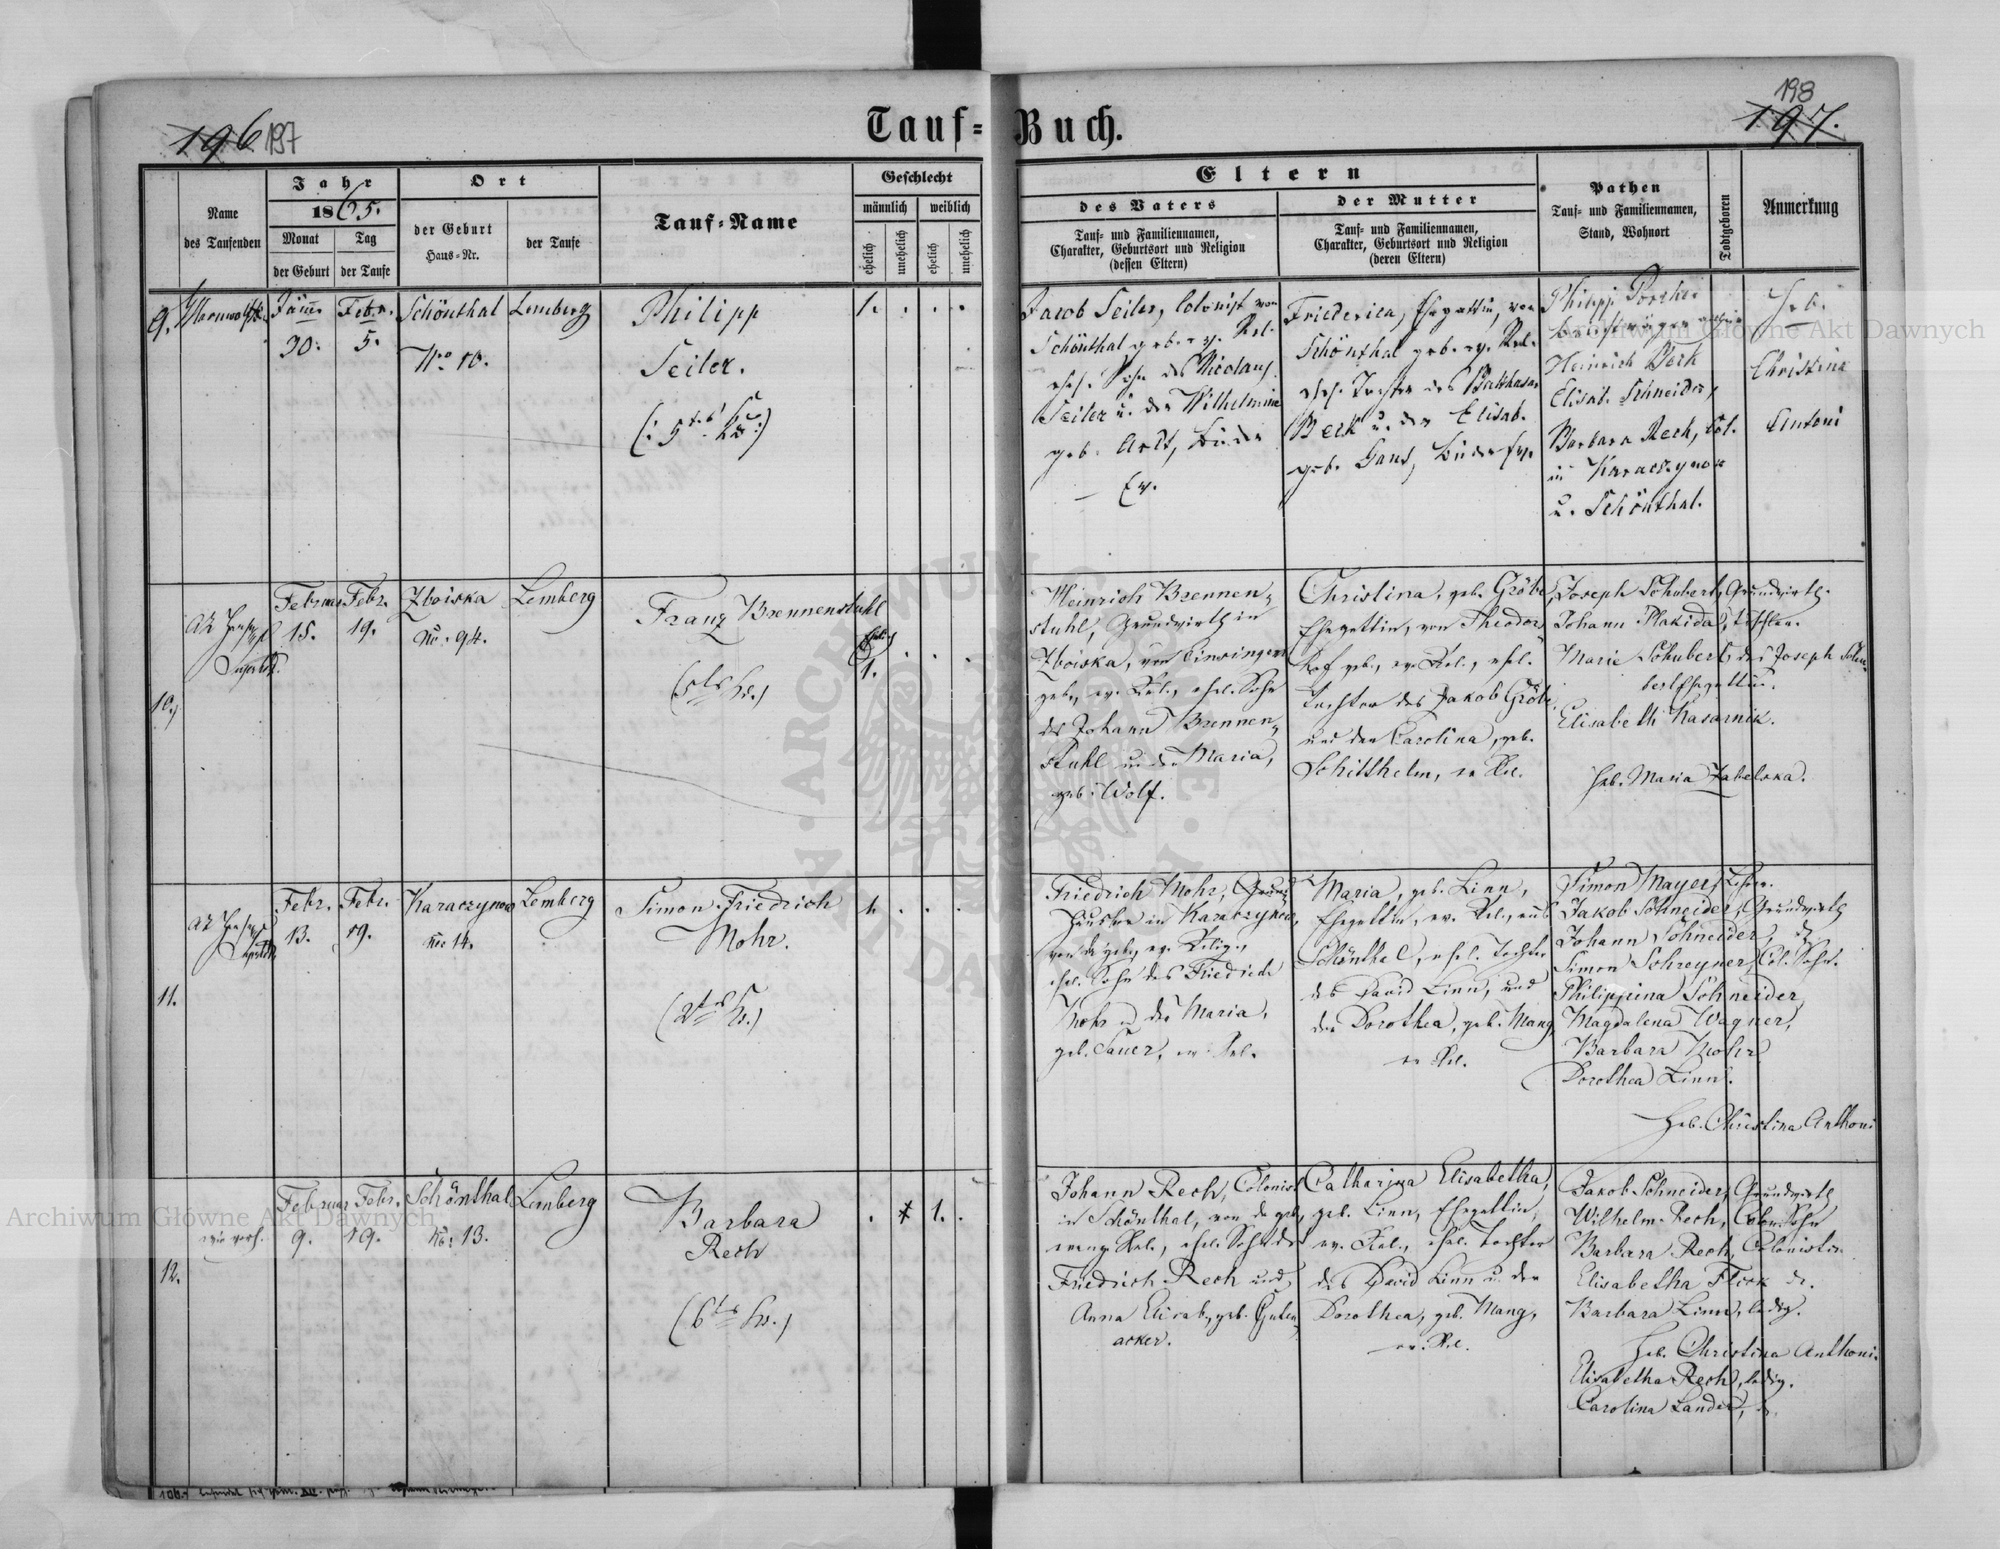 196 197
Tauf-Buch.
198
197.
Name
des Taufenden
Jahr
1865.
Monat
Tag
der Geburt
der Taufe
Ort
der Geburt
Haus-Nr.
der Taufe
Tauf-Name
Geschlecht
männlich
weiblich
ehelich
unehelich
ehelich
unehelich
Eltern
des Vaters
Tauf- und Familiennamen,
Charakter, Geburtsort und Religion
(dessen Eltern)
der Mutter
Tauf- und Familiennamen,
Charakter, Geburtsort und Religion
(deren Eltern)
Pathen
Tauf- und Familiennamen,
Stand, Wohnort
Todtgeboren
Anmerkung
9.
30.
Febr.
5.
Schönthal
No 10.
Lemberg
Philipp
Seiler.
1.
Jacob Seiler, Colonist von
Schönthal geb. ev. Rel.
ehel. Sohn des Nicolaus
Seiler u. der Wilhelmine
geb. Arlt, beide
Ev.
Friederica, Ehegattin, von
Schönthal geb. ev. Rel.
ehel. Tochter des Balthasar
Beck u. der Elisab.
geb. Gans, beide ev.
Philipp
Heinrich Beck
Elisab. Schneider,
Barbara Rech, Col.
in Karaczynow
u. Schönthal.
Heb.
Christina
Antoni
10.
Februar
15.
Febr.
19.
Zboiska
No. 94.
Lemberg
Franz Brennenstuhl
(5tes Ks.)
1.
Heinrich Brennen-
stuhl, Grundwirth in
Zboiska, von Einsingen
geb., ev. Rel., ehel. Sohn
des Johann Brennen-
stuhl und Maria,
geb. Wolf.
Christina, geb. Gröbe,
Ehegattin, von Theodors
hof geb., ev. Rel., ehel.
Tochter des Jakob Gröbe,
und der Carolina, geb.
Schillhelm, ev. Rel.
Joseph Schubert, Grundwirth.
Johann Makida, Tischler.
Marie Schubert, des Joseph Schu-
bert Ehegattin.
Elisabeth Kasarnik.
Heb. Maria Zabelska.
11.
Febr.
13.
Febr.
19.
Karaczynow
No 14.
Lemberg
Simon Friedrich
Mohr.
(2tes Ks.)
1.
Friedrich Mohr, Grund-
in Karaczynow,
von da geb., ev. Relig.,
ehel. Sohn des Friedrich
Mohr u. der Maria,
geb. Sauer, ev. Rel.
Maria, geb. Linn,
Ehegattin, ev. Rel., aus
Schönthal, ehel. Tochter
des David Linn, und
der Dorothea, geb. Mang,
ev. Rel.
Simon Mayer, Lehrer.
Jakob Schneider, Grundwirth
Johann Schneider,
Simon Schreyner, Col. Sohn.
Philippina Schneider,
Magdalena Wagner,
Barbara Mohr
Dorothea Linn.
Heb. Christina Anthoni
12.
wie vorh.
Februar
9.
Febr.
19.
Schönthal
No. 13.
Lemberg
Barbara
Rech
(6tes Ks.)
1.
Johann Rech, Colonist
in Schönthal, von da geb.,
evang. Rel., ehel. Sohn des
Friedrich Rech und
Anna Elisab., geb. Guten-
acker.
Catharina Elisabetha,
geb. Linn, Ehegattin,
ev. Rel., ehel. Tochter
des David Linn u. der
Dorothea, geb. Mang,
ev. Rel.
Jakob Schneider, Grundwirth
Wilhelm Rech, Colon. Sohn
Barbara Rech, Colonistin
Elisabetha Flick
Barbara Linn, ledig.
Heb. Christina Anthoni.
Elisabetha Rech, ledig.
Carolina Lander,
Archiwum Główne Akt Dawnych
Archiwum Główne Akt Dawnych